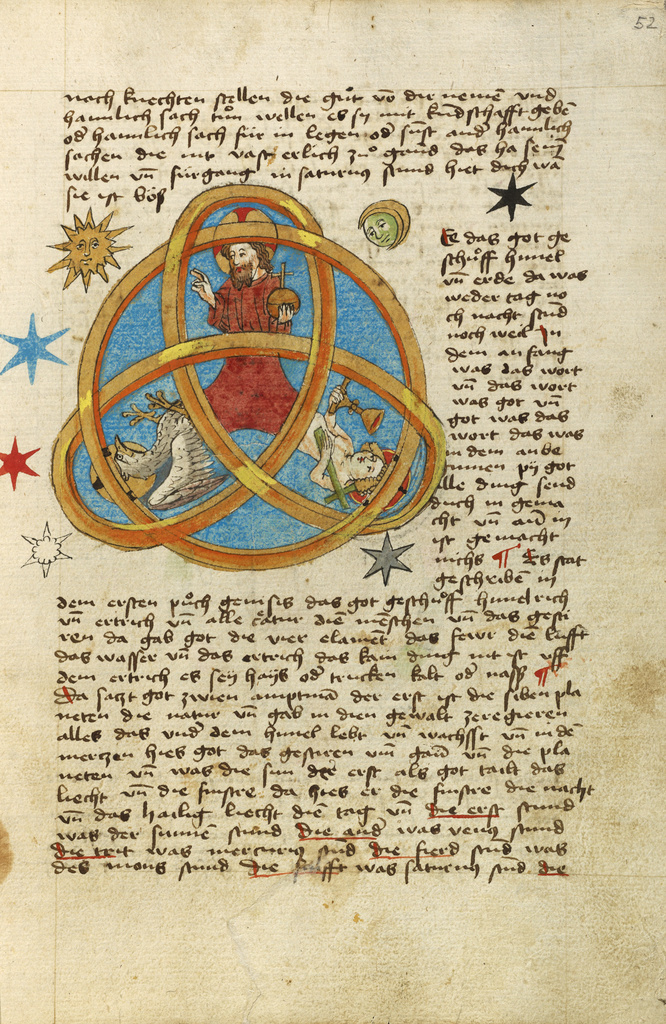 52
nach knechten stellen die gůt vō dir nemē vnd
haimlich sach tůn wellen es sy mit kundschafft gebē
od haimlich sach für in legen od sust and haimlich
sachen die nit vast erlich zů gand das ha
willen vn̄ fürgang in saturnus stund hiet dich wā
sie ist bös
E das got ge
schůff himel
vn̄ erde da was
weder tag no
ch nacht stud
noch weil In
dem anfang
was das wort
vn̄ das wort
was got vn̄
got was das
wort das was
in dem anbe
ginnen py got
alle ding send
durch in gema
cht vn̄ an in
ist gemacht
nichs ¶ Es stat
geschriben in
dem ersten půch genisis das got geschůff himelrich
vn̄ ertrich vn̄ alle catur die mēschen vn̄ das gesti
ren da gab got die vier elamēt das fewr die lufft
das wasser vn̄ das ertrich das kain ding nit ist vff
dem ertrich es sey hays od trucken kalt od nass ¶
Da satzt got zwien amptmā der erst ist die siben pla
neten die natur vn̄ gab in dien gewalt ze regieren
alles das vnd dem himel lebt vn̄ wachsst vn̄ in dē
mertzen hies got das gestiren vm̄ gan vn̄ die pla
neten vn̄ was die sun der erst als got tailt das
liecht vn̄ die finstre da hies er die finstre die nacht
vn̄ das hailig liecht die tag vn̄ die erst stund
was der sunnē stund die and was venus stund
die trit was mercurius stūd die fierd stūd was
des mons stund die fünfft was saturnus stūd die